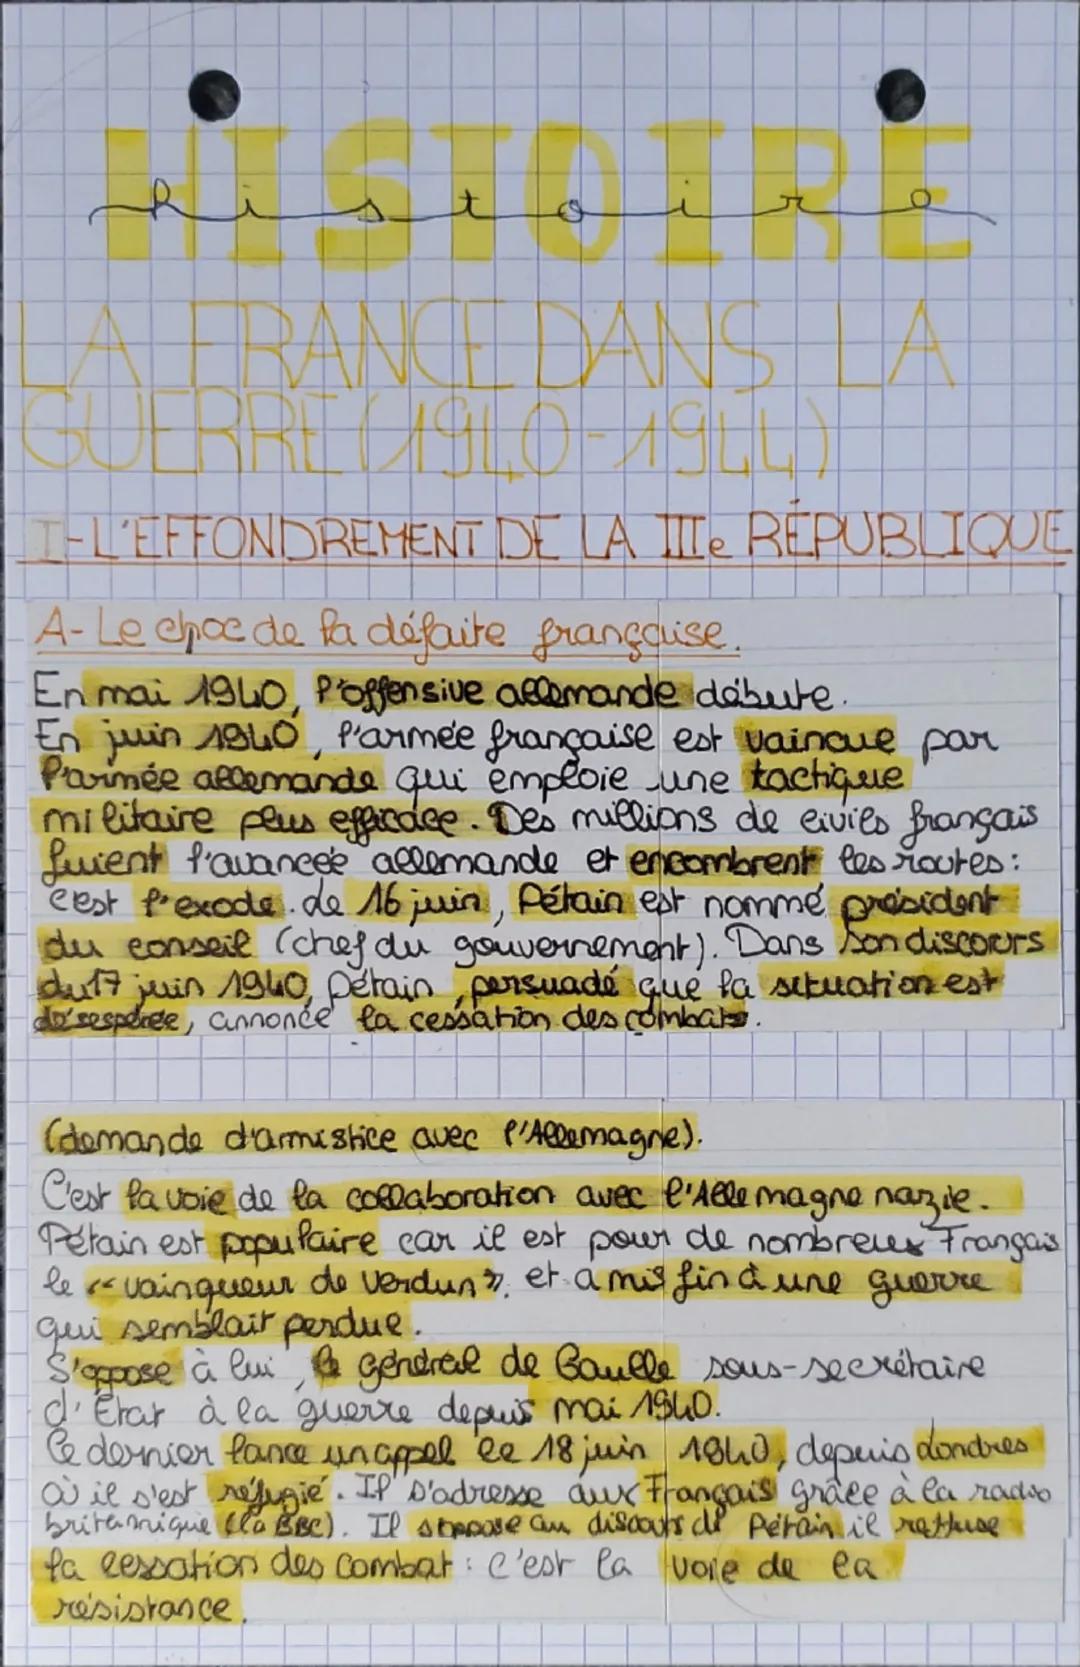 HISTOIRE
histoire
LA FRANCE DANS LA
GUERRE (1940-1944)
I-L'EFFONDREMENT DE LA IIIe RÉPUBLIQUE
A- Le choc de la défaite française.
En mai 1940, l'offensive allemande débute.
En juin 1940, l'armée française est vaincue par
l'armée allemande qui emploie une tactique
militaire plus efficace. Des millions de civils français
fuient l'avancée allemande et encombrent les routes :
c'est l'exode. de 16 juin, Pétain est nommé président
du conseil (chef du gouvernement). Dans son discours
du 17 juin 1940, Pétain, persuadé que la situation est
désespérée, annonce la cessation des combats.
(demande d'armistice avec l'Allemagne).
C'est la voie de la collaboration avec l'Allemagne nazie.
Pétain est populaire car il est pour de nombreux Français
le «vainqueur de Verdun». et a mis fin à une guerre
qui semblait perdue.
S'oppose à lui, le général de Gaulle sous-secrétaire
d'État à la guerre depuis mai 1940.
Ce dernier lance un appel le 18 juin 1940, depuis Londres
où il s'est réfugié. Il s'adresse aux Français grâce à la radio
britannique (la BBC). Il s'oppose au discours de Pétain, il reffuse
la cessation des combat : c'est la voie de la
résistance.